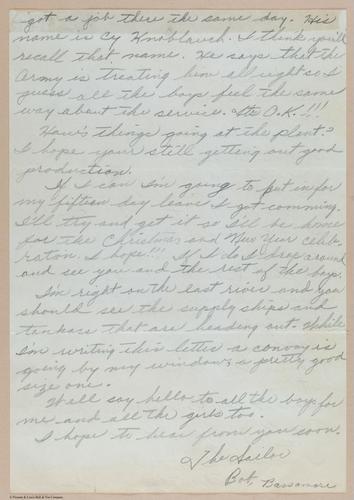 got a job there the same day. His
name is Cy Knoblauch. I think you'll
recall that name. He says that the
Army is treating him all right so I
guess all the boys feel the same
way about the service. Its O.K.!!!
How's things going at the plant?
I hope your still getting out good
production.
If I can I'm going to put in for
my fifteen day leave I got comming.
I'll try and get it so I'll be home
for the Christmas and New Year celib-
ration. I hope!!! If I do I drop around
and see you and the rest of the boys.
I'm right on the east river and you
should see the supply ships and
tankers that are heading out. While
I'm writing this letter a convoy is
going by my window, a pretty good
size one.
Well say hello to all the boys for
me and all the girls too.
I hope to hear from you soon.
The Sailor
Bob